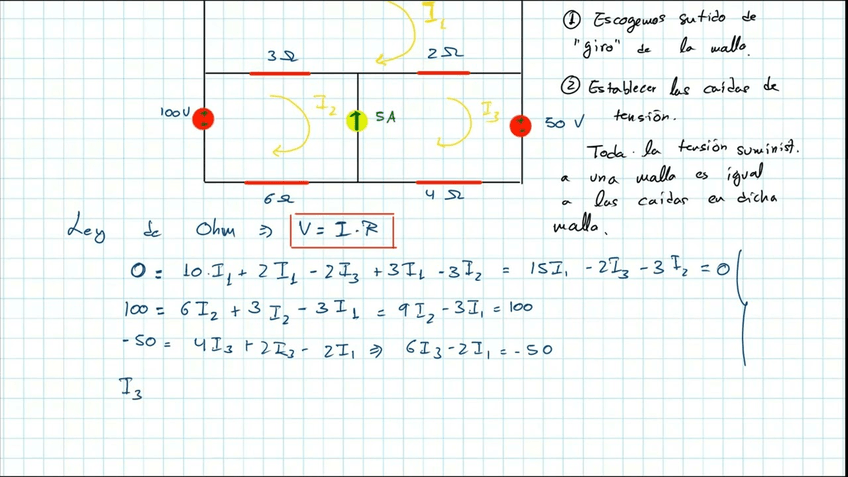 I₁
① Escogemos sutido de
"giro" de la malla.
3Ω
2Ω
② Establecer las caidas de
tensión.
100V
I₂
5A
I₃
50 V
Toda la tensión suminist.
a una malla es igual
a las caidas en dicha
malla.
6Ω
4Ω
Ley de Ohm ⇒ V = I·R
0 = 10·I₁ + 2I₁ - 2I₃ + 3I₁ - 3I₂ = 15I₁ - 2I₃ - 3I₂ = 0
100 = 6I₂ + 3I₂ - 3I₁ = 9I₂ - 3I₁ = 100
-50 = 4I₃ + 2I₃ - 2I₁ ⇒ 6I₃ - 2I₁ = -50
I₃